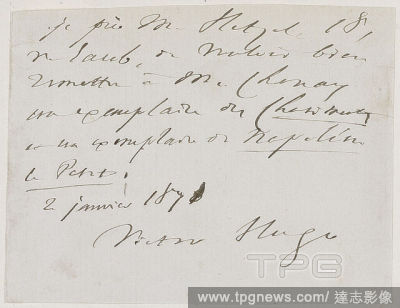 je prie M. Hetzel, 18,
r. Jacob, de vouloir bien
remettre à M. Chenay
un exemplaire des Châtiments
et un exemplaire de Napoléon
le Petit.
2 janvier 1871
Victor Hugo
TPG
www.tpgnews.com/ 達志影像